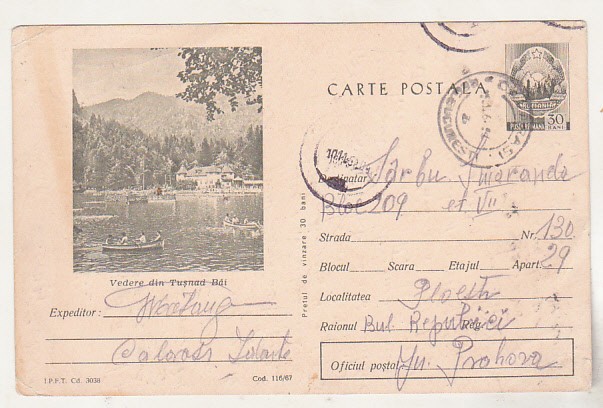 CARTE POSTALA
POSTA ROMANA 30 BANI
Vedere din Tușnad Băi
Expeditor:
Pretul de vinzare 30 bani
Destinatar Sârbu Smaranda
Bloc 209 et VII
Strada Nr. 130
Blocul Scara Etajul Apart. 29
Localitatea Ploesti
Raionul Bul. Republicii
Oficiul poștal Ju. Prahova
I.P.F.T. Cd. 3038
Cod. 116/67